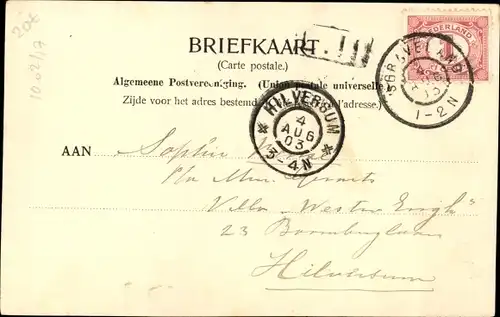 20t
10.02/17
BRIEFKAART.
(Carte postale.)
Algemeene Postvereeniging. (Union postale universelle)
Zijde voor het adres bestemd. l'adresse.)
NEDERLAND
1
'SGRAVELAND
4 AUG 03
1-2N
HILVERSUM
4
AUG
03
3-4N
AAN Sophie
p/a Mevr.
Villa "Wester Engh"
23
Hilversum